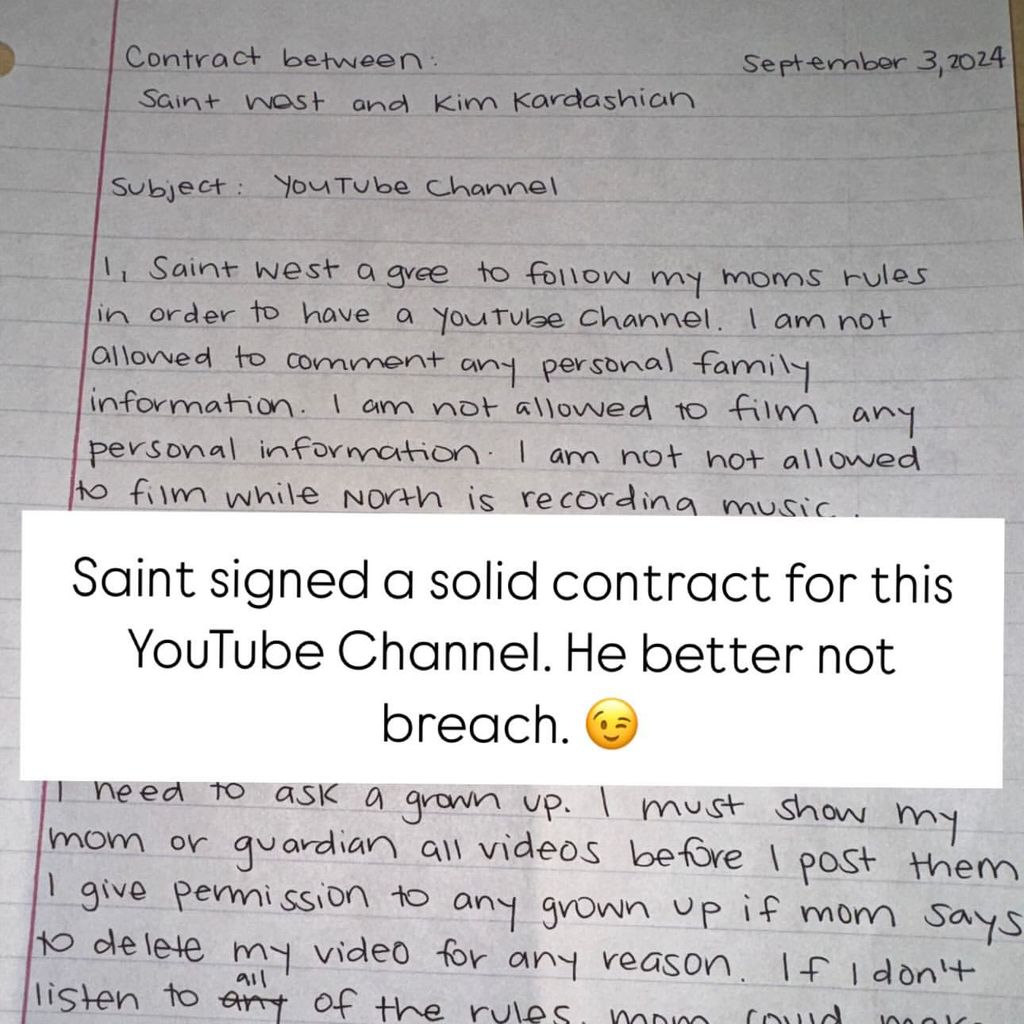 Contract between:
September 3, 2024
Saint West and Kim Kardashian
Subject: YouTube Channel
I, Saint West agree to follow my moms rules
in order to have a YouTube Channel. I am not
allowed to comment any personal family
information. I am not allowed to film any
personal information. I am not not allowed
to film while North is recording music.
Saint signed a solid contract for this
YouTube Channel. He better not
breach. 😉
I need to ask a grown up. I must show my
mom or guardian all videos before I post them
I give permission to any grown up if mom says
to delete my video for any reason. If I don't
all
listen to any of the rules, mom could make